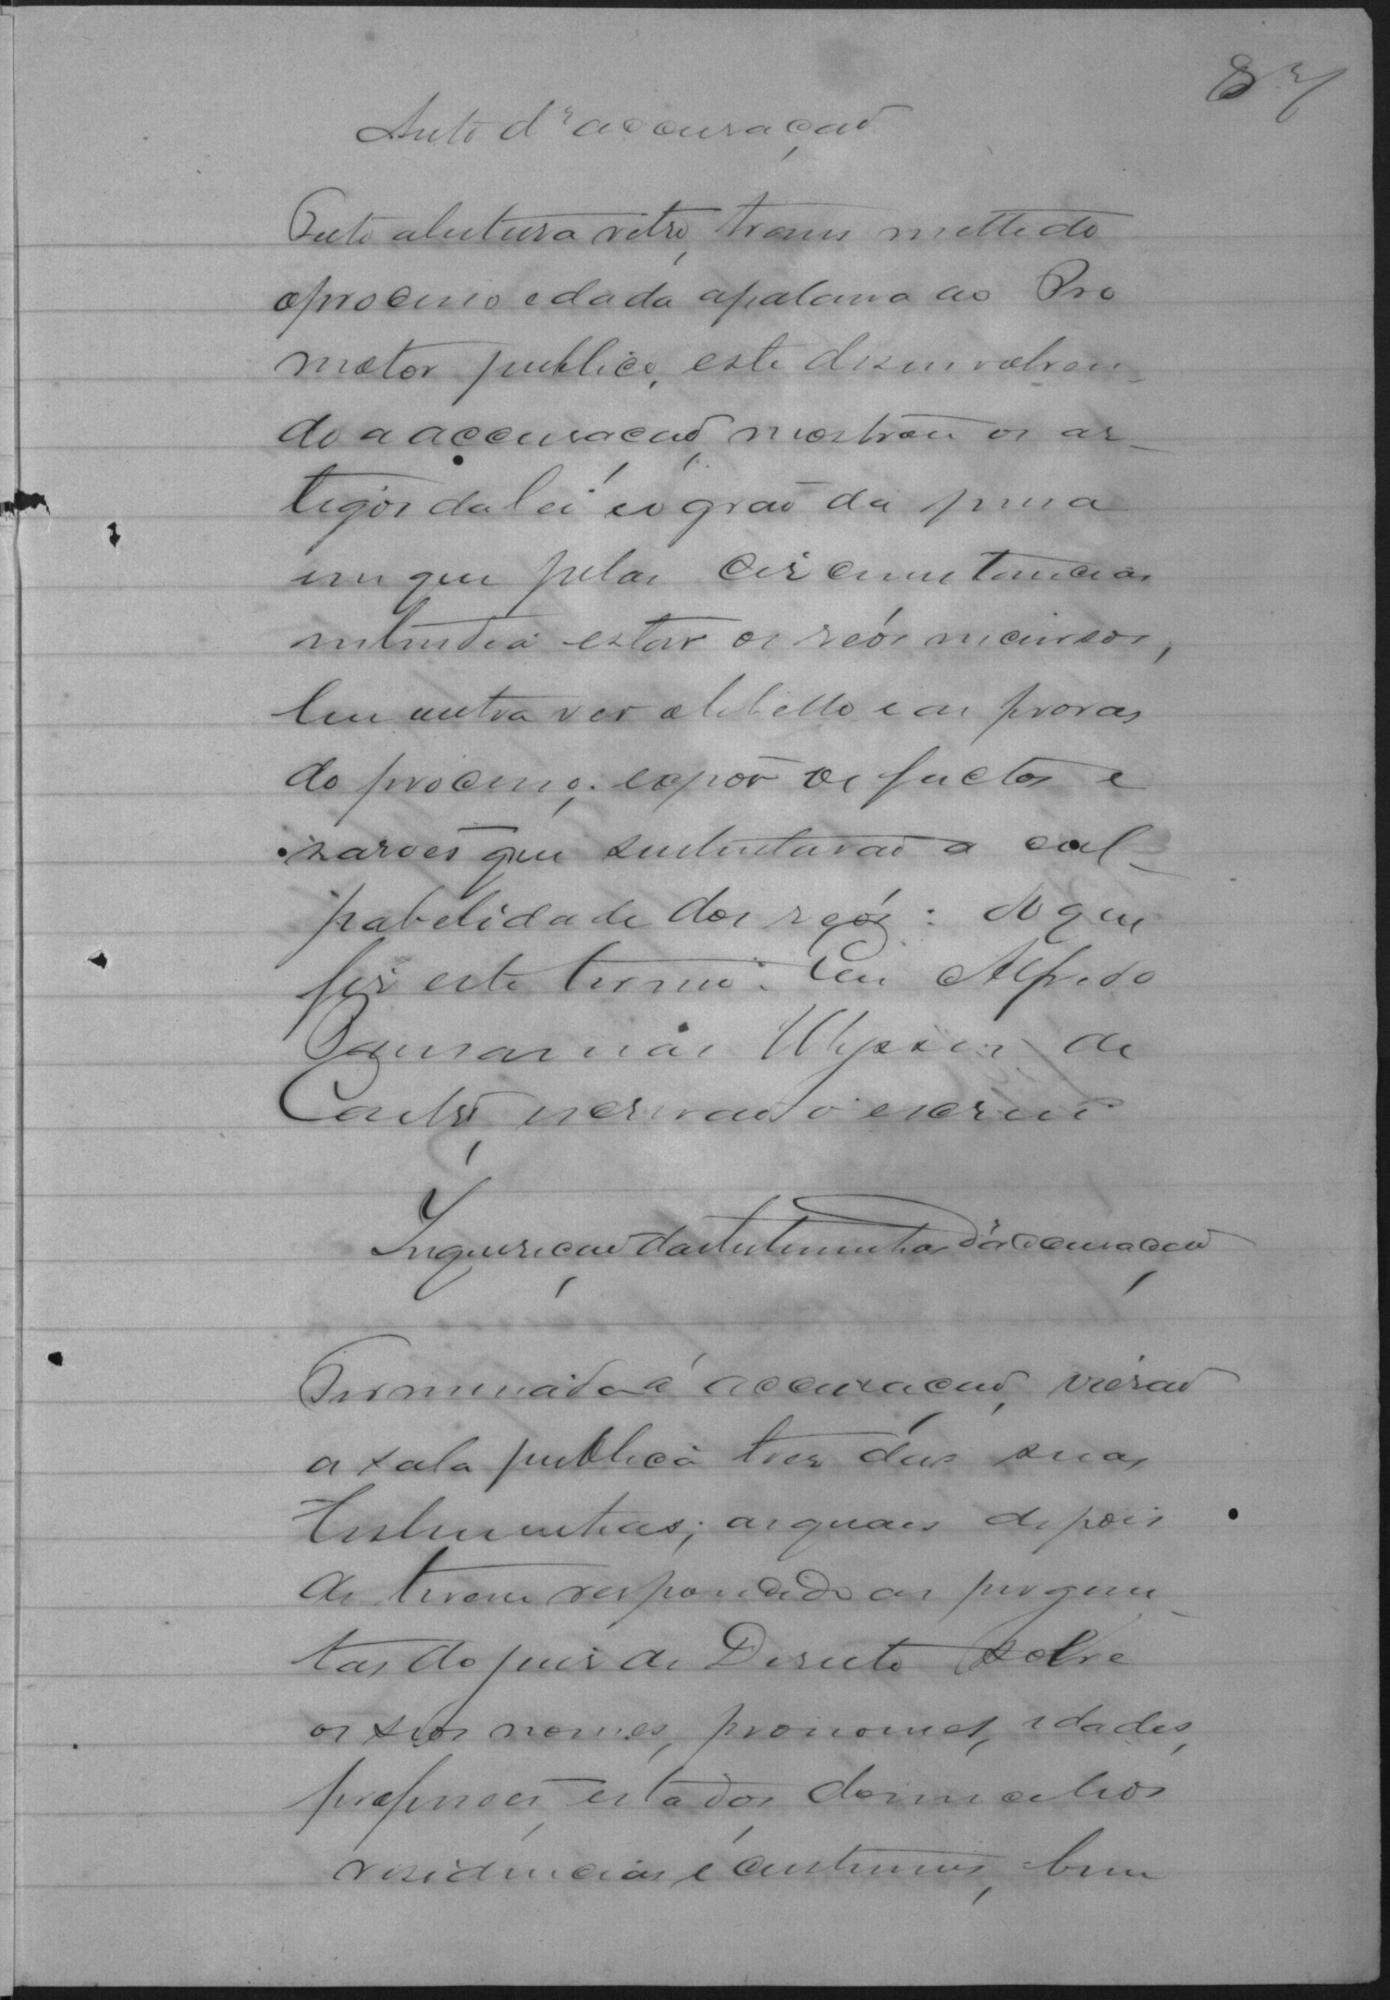 87
Auto d'accusação
Feita abertura retro, trans mettido
oprocesso edada apalavra ao Pro
motor publico, este desenvolven-
do a accusação, mostrou os ar-
tigos da lei e o grao da pena
em que pelas circumstancias
entendia estar os reos incursos,
leu outra vez o libello e as provas
do processo; expor os factos e
razoes que sustentavão a cul-
pabilidade dos reos: do que
fiz este termo. Eu Alfredo
Ulysses de
Castro, escrivão o escrevi
Inquirição das testemunhas d'accusação
Terminada a accusação, vierão
a sala publica tres das suas
testemunhas; as quaes depois
de terem respondido as pergun-
tas do juiz de Direito sobre
os seos nomes, pronomes, idades,
profissoes, estados, domicilios
residencias e custumes, bem